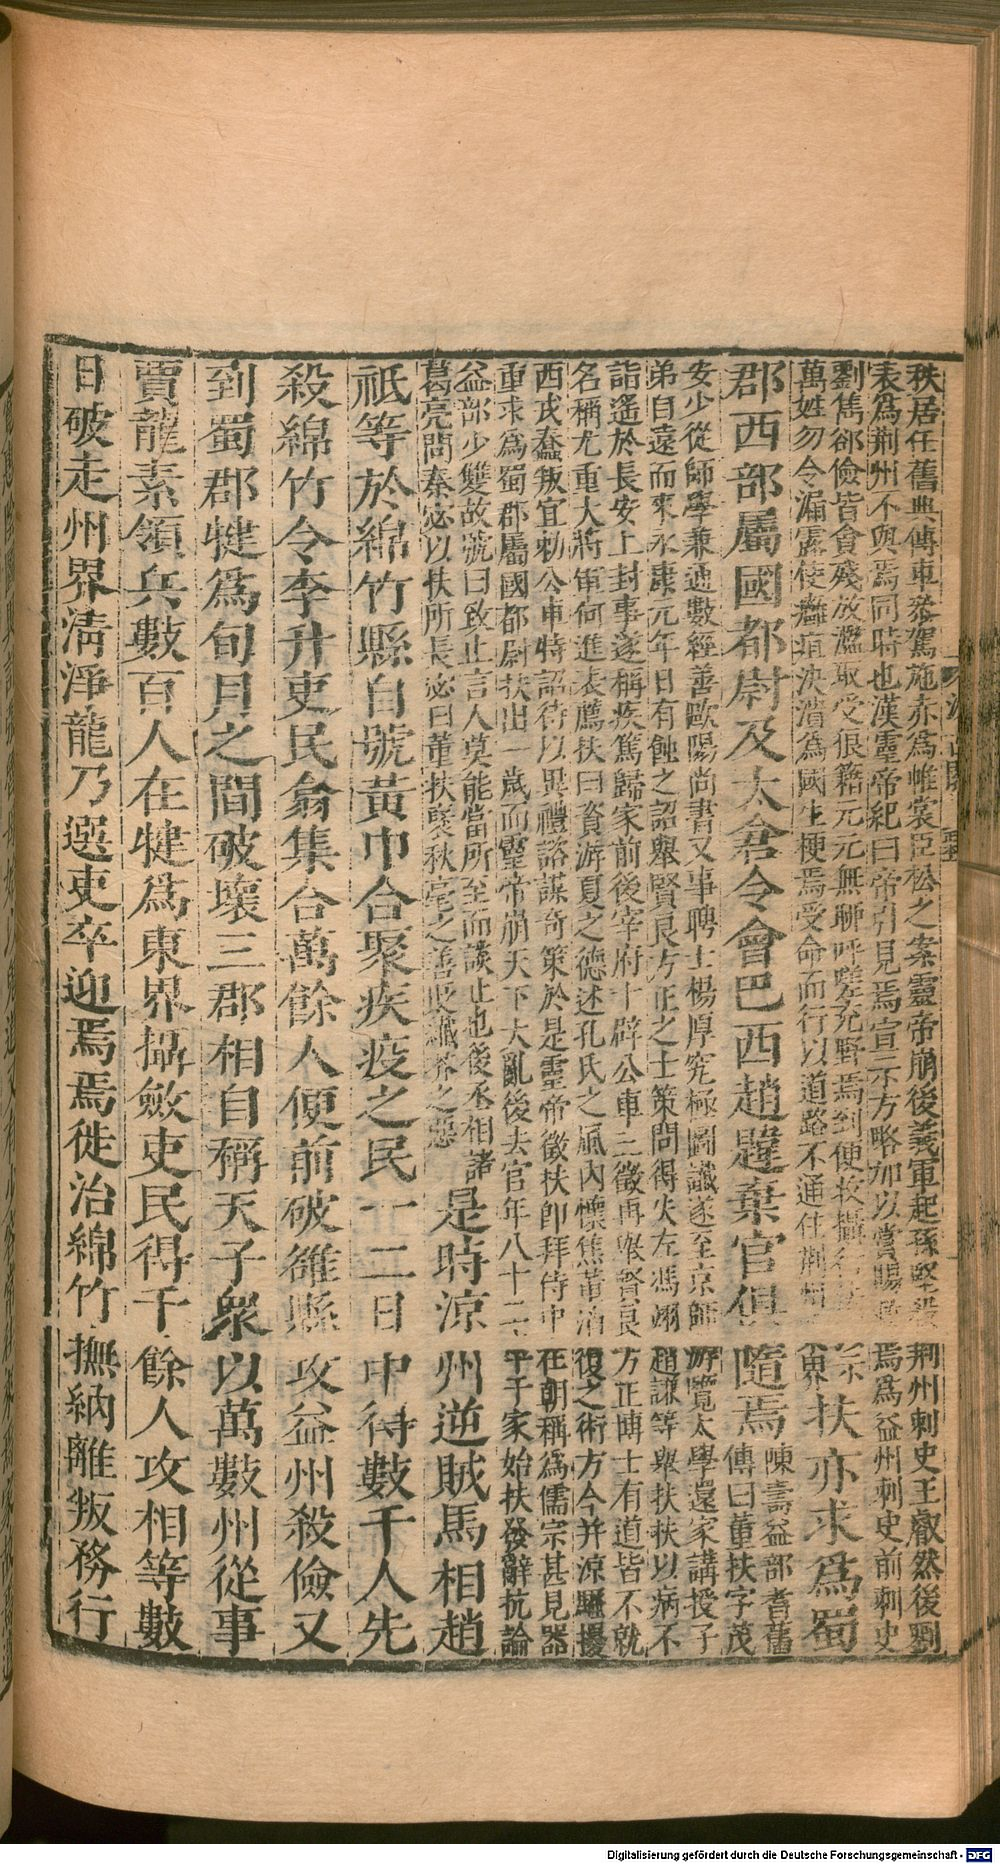 秩居任舊典傳車參駕施赤爲帷裳臣松之案靈帝崩後義軍起孫堅殺荆州刺史王叡然後劉
表爲荆州不與焉同時也漢靈帝紀曰帝引見焉宣示方略加以賞賜敕焉爲益州刺史前刺史
劉雋郤儉皆貪殘放濫取受狼籍元元無聊呼嗟充野焉到便收攝行法
萬姓勿令漏露使癰疽決潰爲國生梗焉受命而行以道路不通住荆州界
扶亦求爲蜀
郡西部屬國都尉及太倉令會巴西趙韙棄官俱隨焉
陳壽益部耆舊
傳曰董扶字茂
安少從師學兼通數經善歐陽尚書又事聘士楊厚究極圖讖遂至京師游覽太學還家講授子
弟自遠而來永康元年日有蝕之詔舉賢良方正之士策問得失左馮翊趙謙等舉扶扶以病不
詣遙於長安上封事遂稱疾篤歸家前後宰府十辟公車三徵再舉賢良方正博士有道皆不就
名稱尤重大將軍何進表薦扶曰資游夏之德述孔氏之風内懷焦董消復之術方今并涼騷擾
西戎蠢叛宜勅公車特詔待以異禮諮謀奇策於是靈帝徵扶即拜侍中在朝稱爲儒宗甚見器
重求爲蜀郡屬國都尉扶出一歳而靈帝崩天下大亂後去官年八十二卒于家始扶發辭抗論
益部少雙故號曰致止言人莫能當所至而談止也後丞相諸
葛亮問秦宓以扶所長宓曰董扶襃秋毫之善貶纖芥之惡
是時涼州逆賊馬相趙
祗等於綿竹縣自號黄巾合聚疾疫之民一二日中得數千人先
殺綿竹令李升吏民翕集合萬餘人便前破雒縣攻益州殺儉又
到蜀郡犍爲旬月之間破壞三郡相自稱天子衆以萬數州從事
賈龍素領兵數百人在犍爲東界攝斂吏民得千餘人攻相等數
日破走州界淸淨龍乃選吏卒迎焉焉徙治綿竹撫納離叛務行
Digitalisierung gefördert durch die Deutsche Forschungsgemeinschaft - DFG